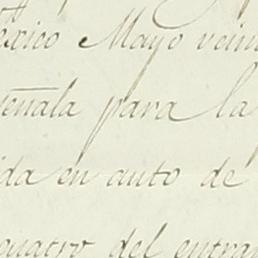 exico Mayo vein
señala para la
ida en auto de
cuatro del entra